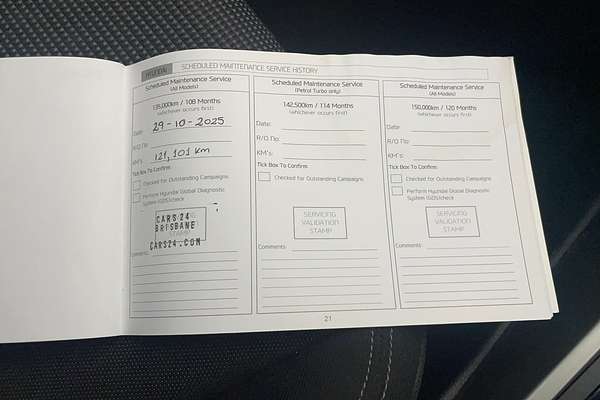 HYUNDAI SCHEDULED MAINTENANCE SERVICE HISTORY
Scheduled Maintenance Service
(All Models)
135,000km / 108 Months
(whichever occurs first)
Date: 29-10-2025
R/O No:
KM's: 121,101 km
Tick Box To Confirm
Checked for Outstanding Campaigns
Perform Hyundai Global Diagnostic
System (GDS)check
CARS24
BRISBANE
STAMP
CARS24.COM
Comments:
Scheduled Maintenance Service
(Petrol Turbo only)
142,500km / 114 Months
(whichever occurs first)
Date:
R/O No:
KM's:
Tick Box To Confirm
Checked for Outstanding Campaigns
SERVICING
VALIDATION
STAMP
Comments
Scheduled Maintenance Service
(All Models)
150,000km / 120 Months
(whichever occurs first)
Date
R/O No:
KM's:
Tick Box To Confirm
Checked for Outstanding Campaigns
Perform Hyundai Global Diagnostic
System (GDS)check
SERVICING
VALIDATION
STAMP
Comments
21